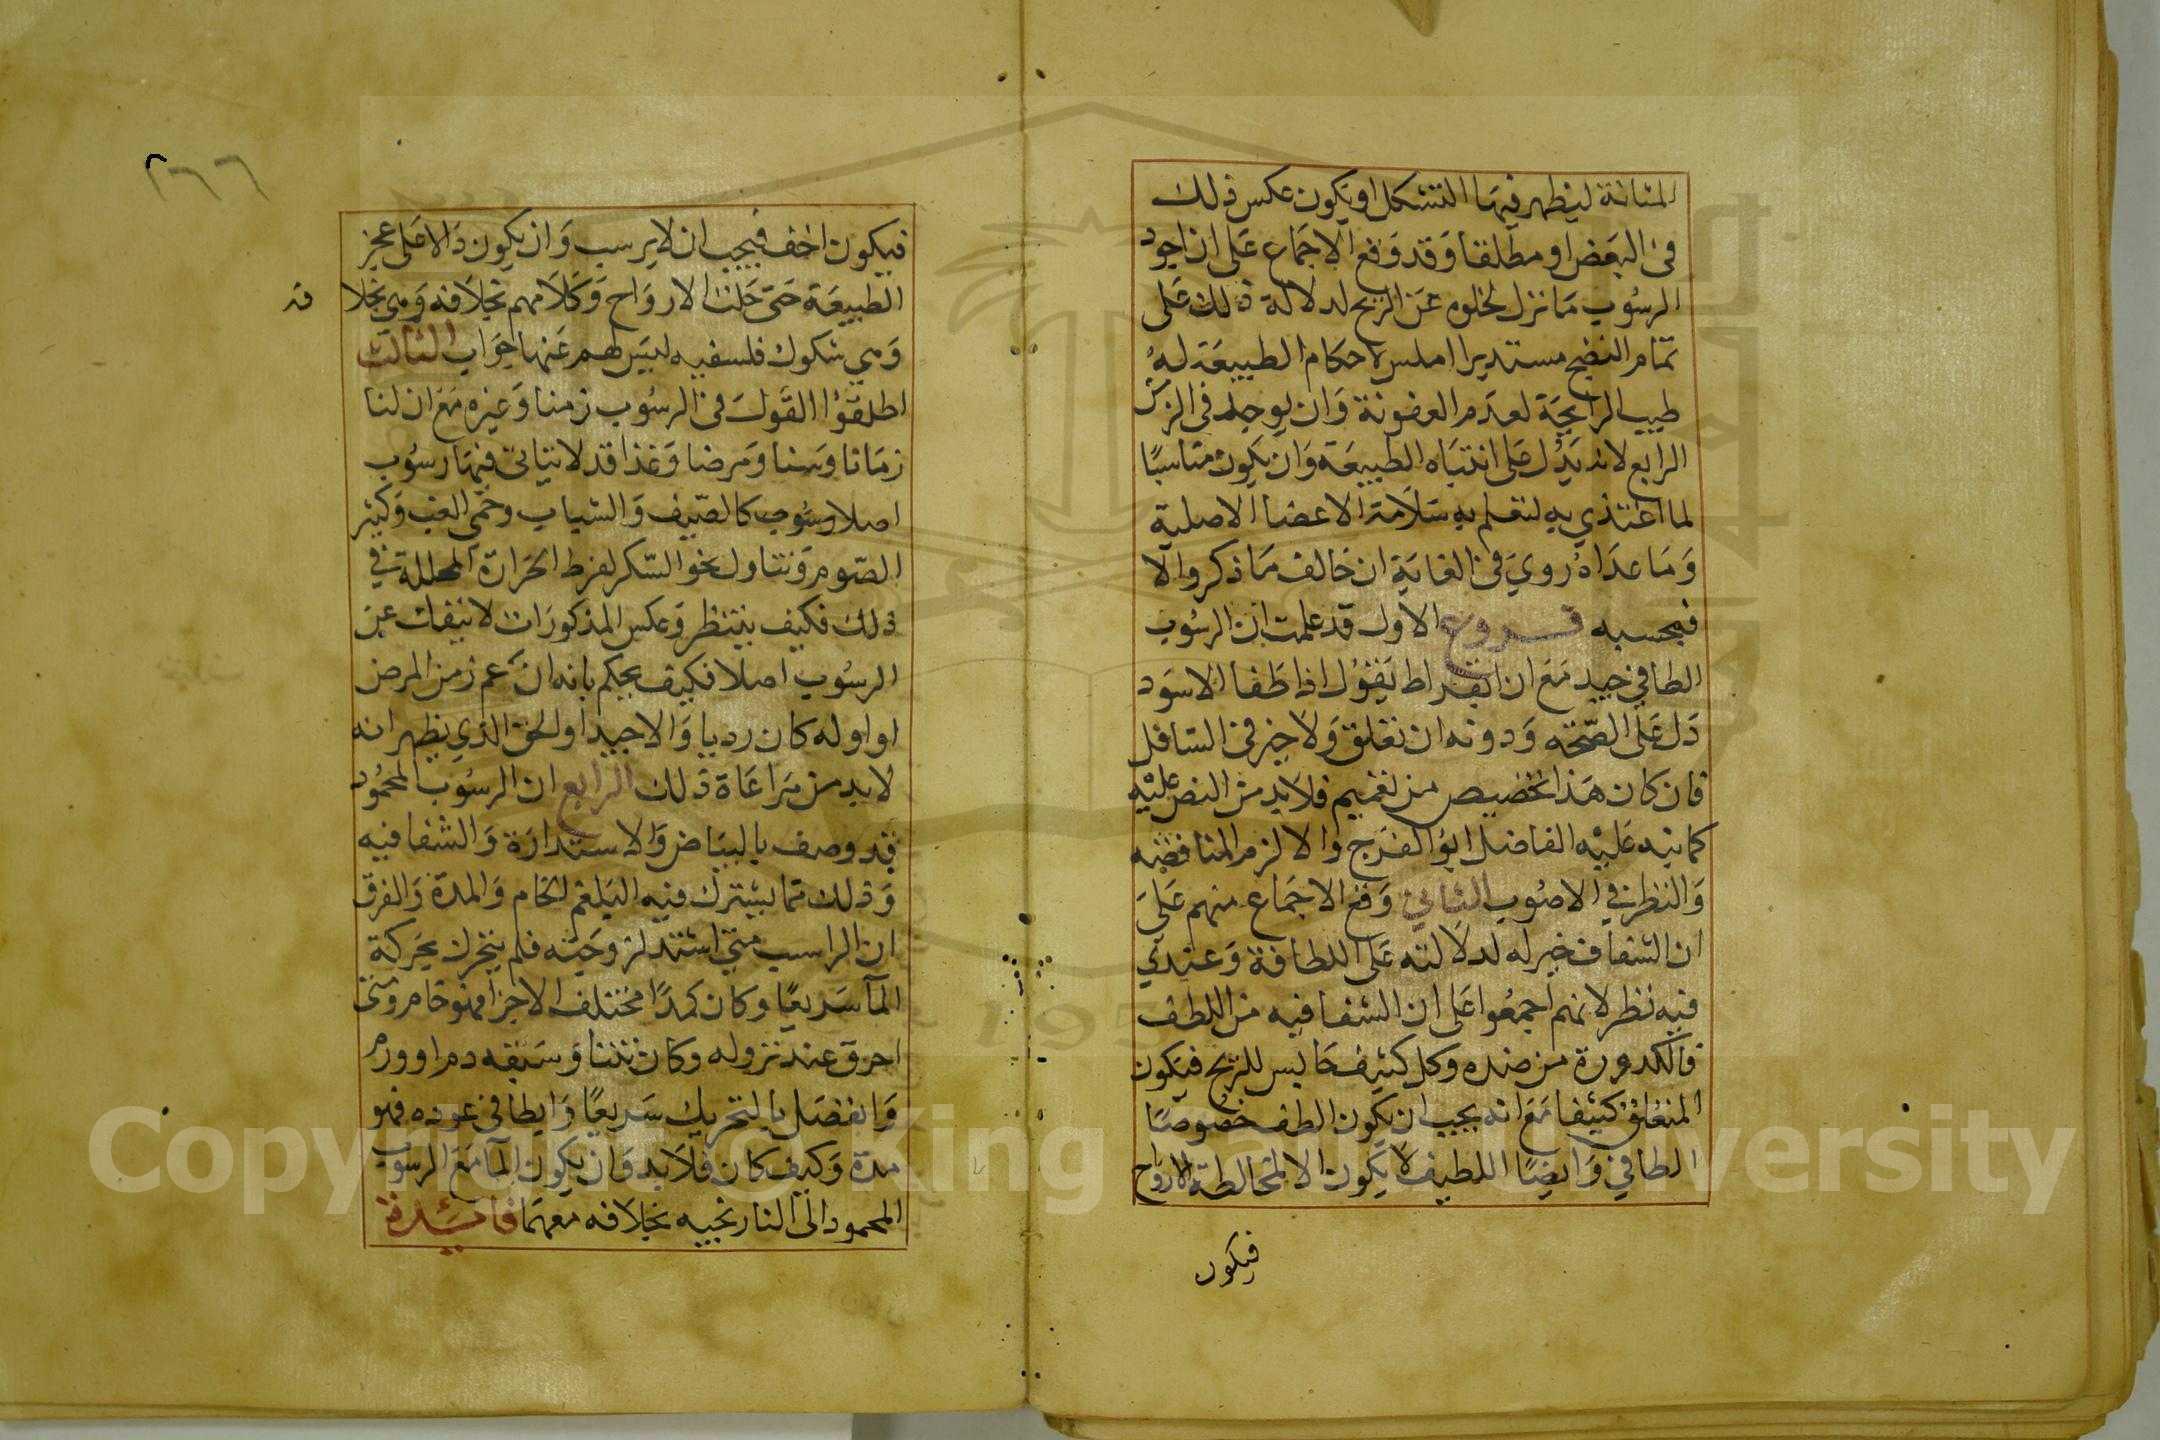 المثانة ليظهر فيها التشكل او يكون عكس ذلك
في البعض او مطلقا وقد وقع الاجماع على ان اجود
الرسوب ما نزل لخلوه عن الريح لدلالة ذلك على
تمام النضج مستديرا املس لاحكام الطبيعة له
طيب الرايحة لعدم العفونة وان يوجد في
الرابع لانه يدل على انتباه الطبيعة وان يكون مناسبا
لما اغتذي به لتعلم به سلامة الاعضا الاصلية
وما عداه روي في الغاية ان خالف ما ذكر والا
فبحسبه فروع الاول قد علمت ان الرسوب
الطافي جيد مع ان ابقراط يقول اذا طفا الاسود
دل على الصحة ودونه ان تعلق ولا خير في السافل
فان كان هذا تخصيص من تعميم فلا بد من النص عليه
كما نبه عليه الفاضل ابو الفرج والا لزم المناقضة
والنظر في الاصوب الثاني وقع الاجماع منهم على
ان الشفاف خير له لدلالته على اللطافة وعندي
فيه نظر لانهم اجمعوا على ان الشفافيه من اللطف
فالكدورة من ضده وكل كثيف حابس للريح فيكون
المتعلق كثيفا مع انه يجب ان يكون الطف خصوصا
الطافي وايضا اللطيف لا يكون الا لمخالطة الارواح
فيكون
٢٦٦
فيكون اخف فيجب ان لا يرسب وان يكون دالا على عجز
الطبيعة حتى حللت الارواح وكلامهم بخلافه وهي بخلا
فه
وهي شكوك فلسفيه ليس لهم عنها جواب الثالث
اطلقوا القول في الرسوب زمنا وغيره مع ان لنا
زمانا وسنا ومرضا وغذا قد لا يتاتى فيها رسوب
اصلا رسوب كالصيف والشباب وحمى الغب وكثير
الصوم وتناول نحو السكر لفرط الحرارة المحللة في
ذلك فكيف ينتظر وعكس المذكورات لا ينفك عن
الرسوب اصلا فكيف يحكم بانه ان عم زمن المرض
او اوله كان رديا والا جيدا والحق الذي يظهر انه
لا بد من مراعاة ذلك الرابع ان الرسوب المحمود
قد وصف بالبياض والاستدارة والشفافيه
وذلك مما يشترك فيه البلغم الخام والمدة والفرق
ان الراسب متى اشتد لزوجته فلم يتحرك بحركة
الما سريعا وكان كمدا مختلف الاجزا فهو خام ومتى
احرق عند نزوله وكان نتنا وسبقه دم او ورم
وانفصل بالتحريك سريعا وابطا في عوده فهو
مدة وكيف كان فلا بد وان يكون الما مع الرسوب
المحمود الى النارنجيه بخلافه معهما فائدة